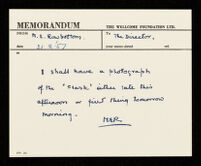 MEMORANDUM THE WELLCOME FOUNDATION LTD.
FROM M.E. Rowbottom. To The Director,
DATE 21.8.57 your memo dated ref
I shall have a photograph
of the "Flask" either late this
afternoon or first thing tomorrow
morning.
MER.